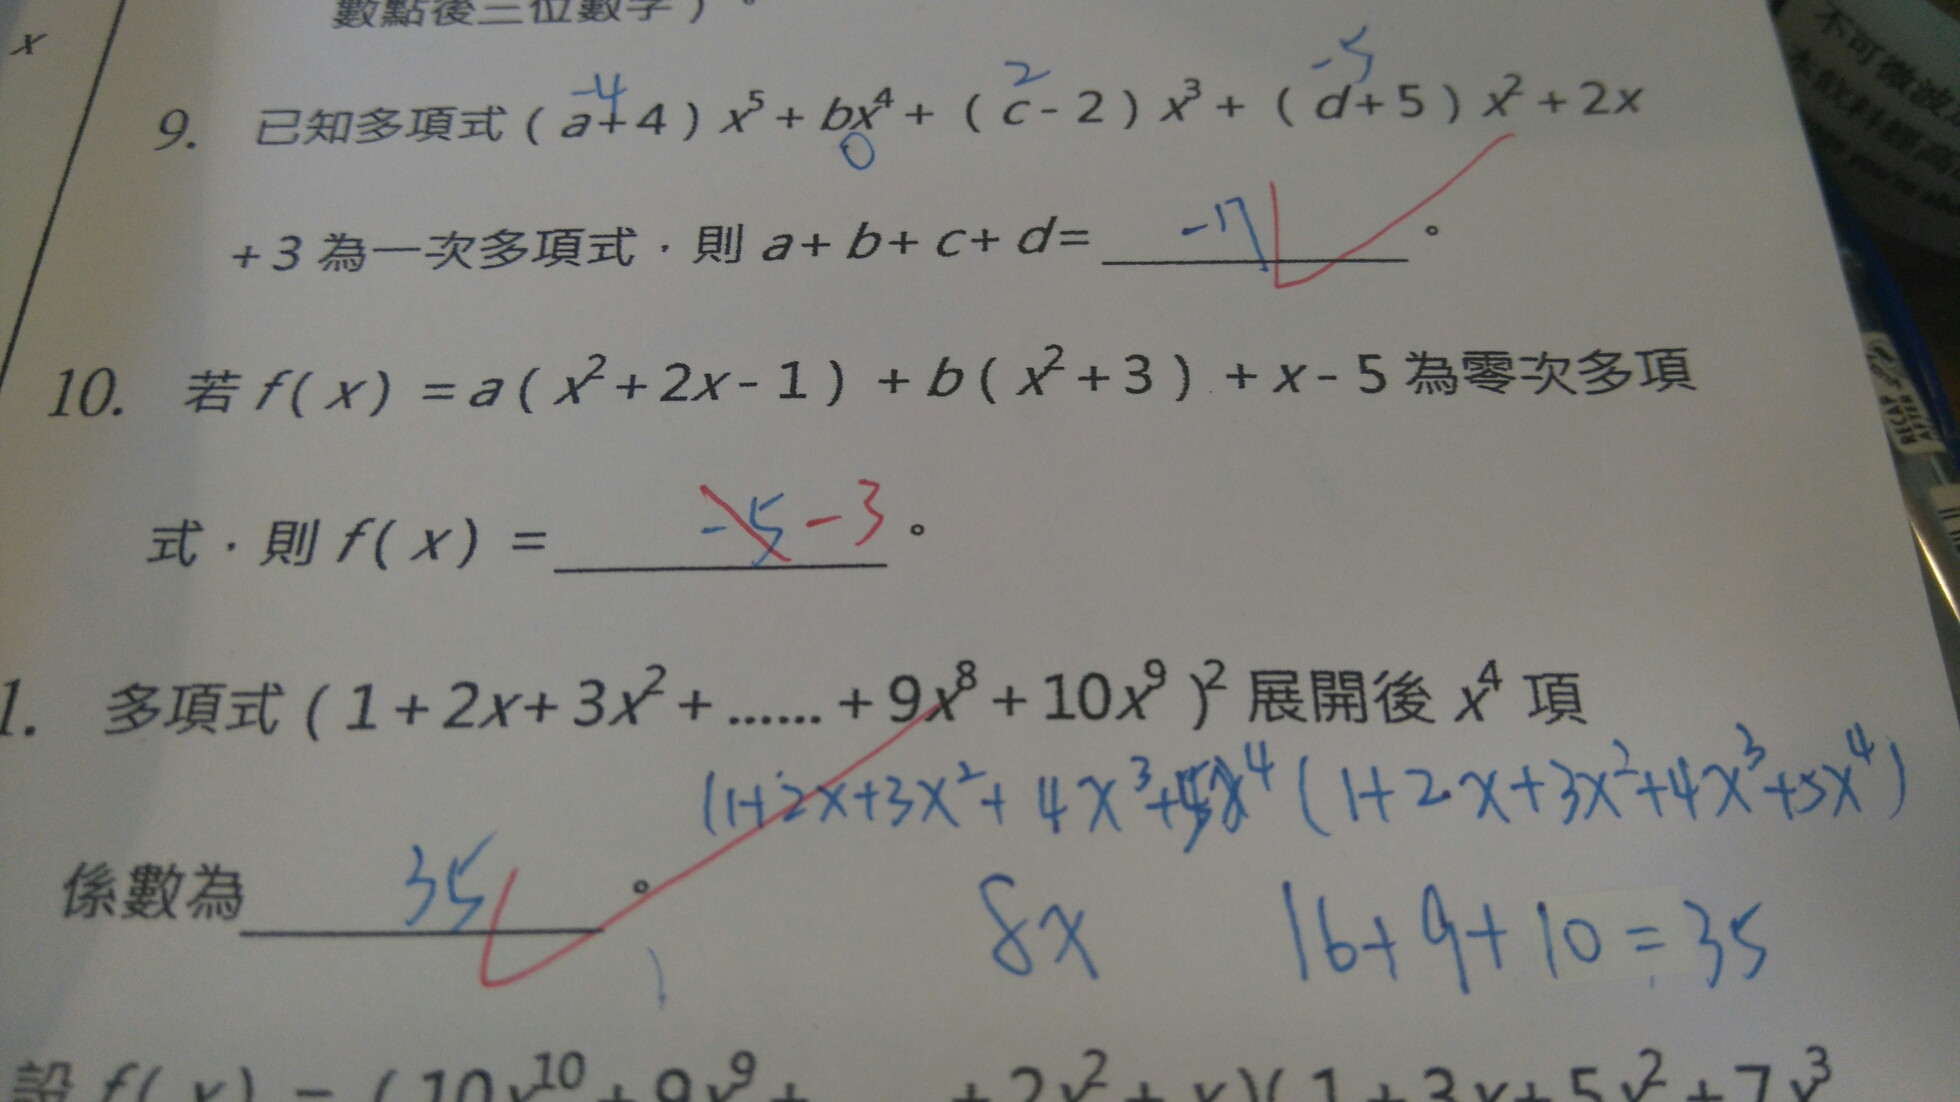 數點後三位數字）。
x
-4 2 -5
9. 已知多項式（a+4）x⁵+bx⁴+（c-2）x³+（d+5）x²+2x
0
+3為一次多項式，則a+b+c+d= -17 。
10. 若f(x)=a(x²+2x-1)+b(x²+3)+x-5為零次多項
式，則f(x)= -5 -3 。
1. 多項式(1+2x+3x²+……+9x⁸+10x⁹)²展開後x⁴項
(1+2x+3x²+4x³+5x⁴(1+2x+3x²+4x³+5x⁴)
係數為 35 。
8x 16+9+10=35
設f(x)=(10x¹⁰+9x⁹+ +2x²+x)(1+3x+5x²+7x³
不可微波
RECAP
AFTER